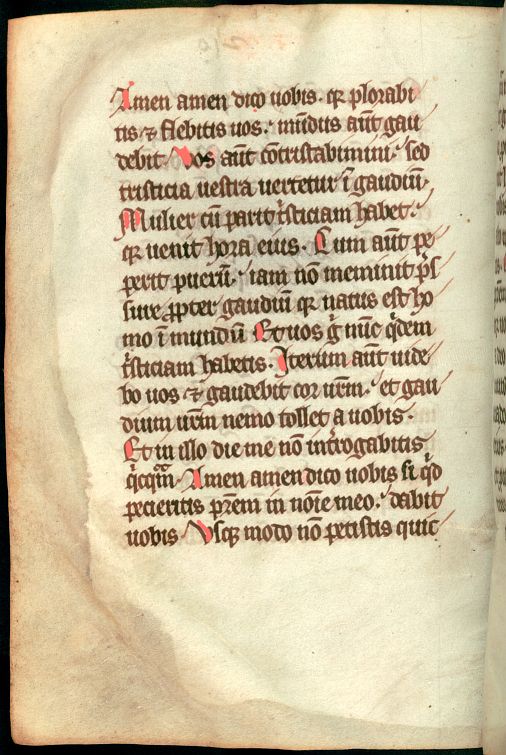 Amen amen dico uobis. qꝛ plorabi
tis ⁊ flebitis uos. mūdus aūt gau
debit. Vos aūt cōtristabimini. sed
tristicia uestra uertetur ī gaudiū.
Mulier cū parit tͥsticiam habet.
qꝛ uenit hora eius. Cum aūt pe
perit pueru̅. iam nō meminit p̄s
sure ꝓpter gaudiū qꝛ natus est ho
mo ī mundū Et uos gͦ nūc qͥdem
tͥsticiam habetis. Iterum aūt uide
bo uos ⁊ gaudebit cor ur̄m. et gau
dium ur̄m nemo tollet a uobis.
Et in illo die me nō intͦrogabitis
qͥcqͣm. Amen amen dico uobis si qͥd
pecieritis pr̄em in noīe meo. dabit
uobis Vsqꝫ modo nō petistis quic